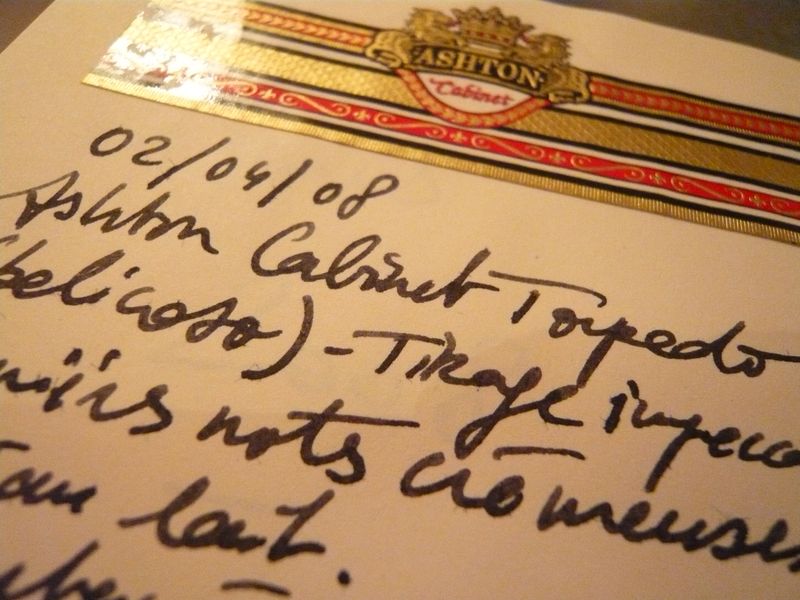 ASHTON
Cabinet
02/04/08
Ashton Cabinet Torpedo
(belicoso) - Tirage impecca
mières notes crêmeuses
au lait.